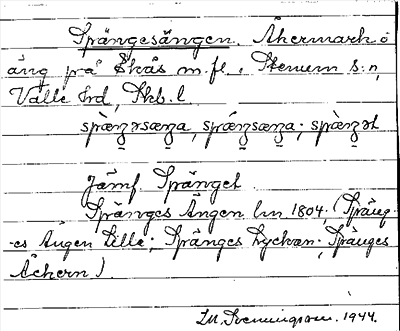 Spängesängen. Åkermark o
äng på Skås m.fl., Stenum s:n,
Valle hd, Skb. l.
spæ̀ŋəsæŋa, spæ̀ŋsæŋa; spæ̀ŋət
Jämf. Spänget
Spänges Ängen Lm 1804. (Späng-
es Ängen Lille; Spänges Lyckan; Spänges
Åkern).
I.M. Svenningson. 1944.